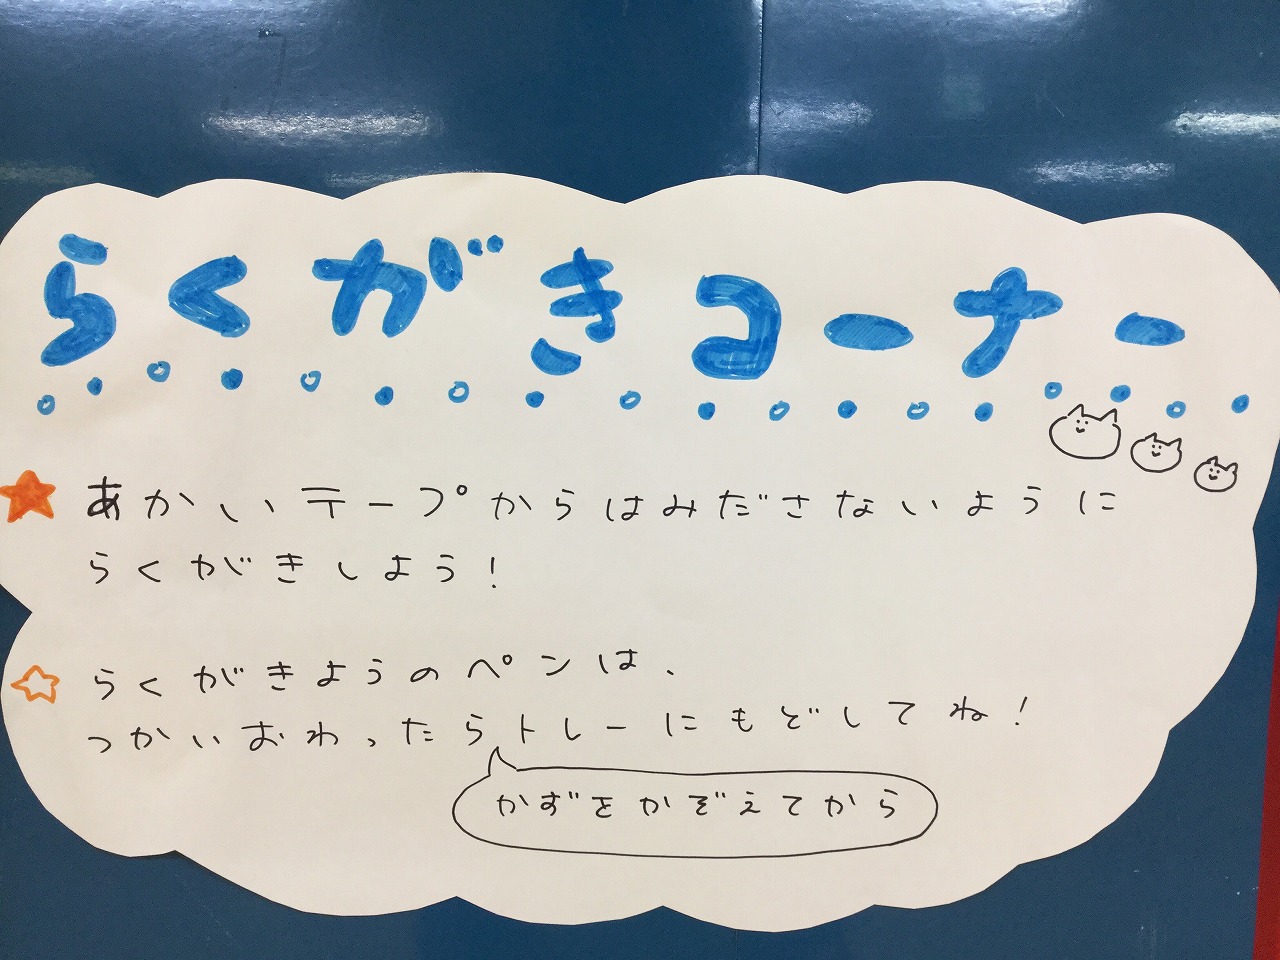 らくがきコーナー
あかいテープからはみださないように
らくがきしよう!
らくがきようのペンは、
つかいおわったらトレーにもどしてね!
かずをかぞえてから